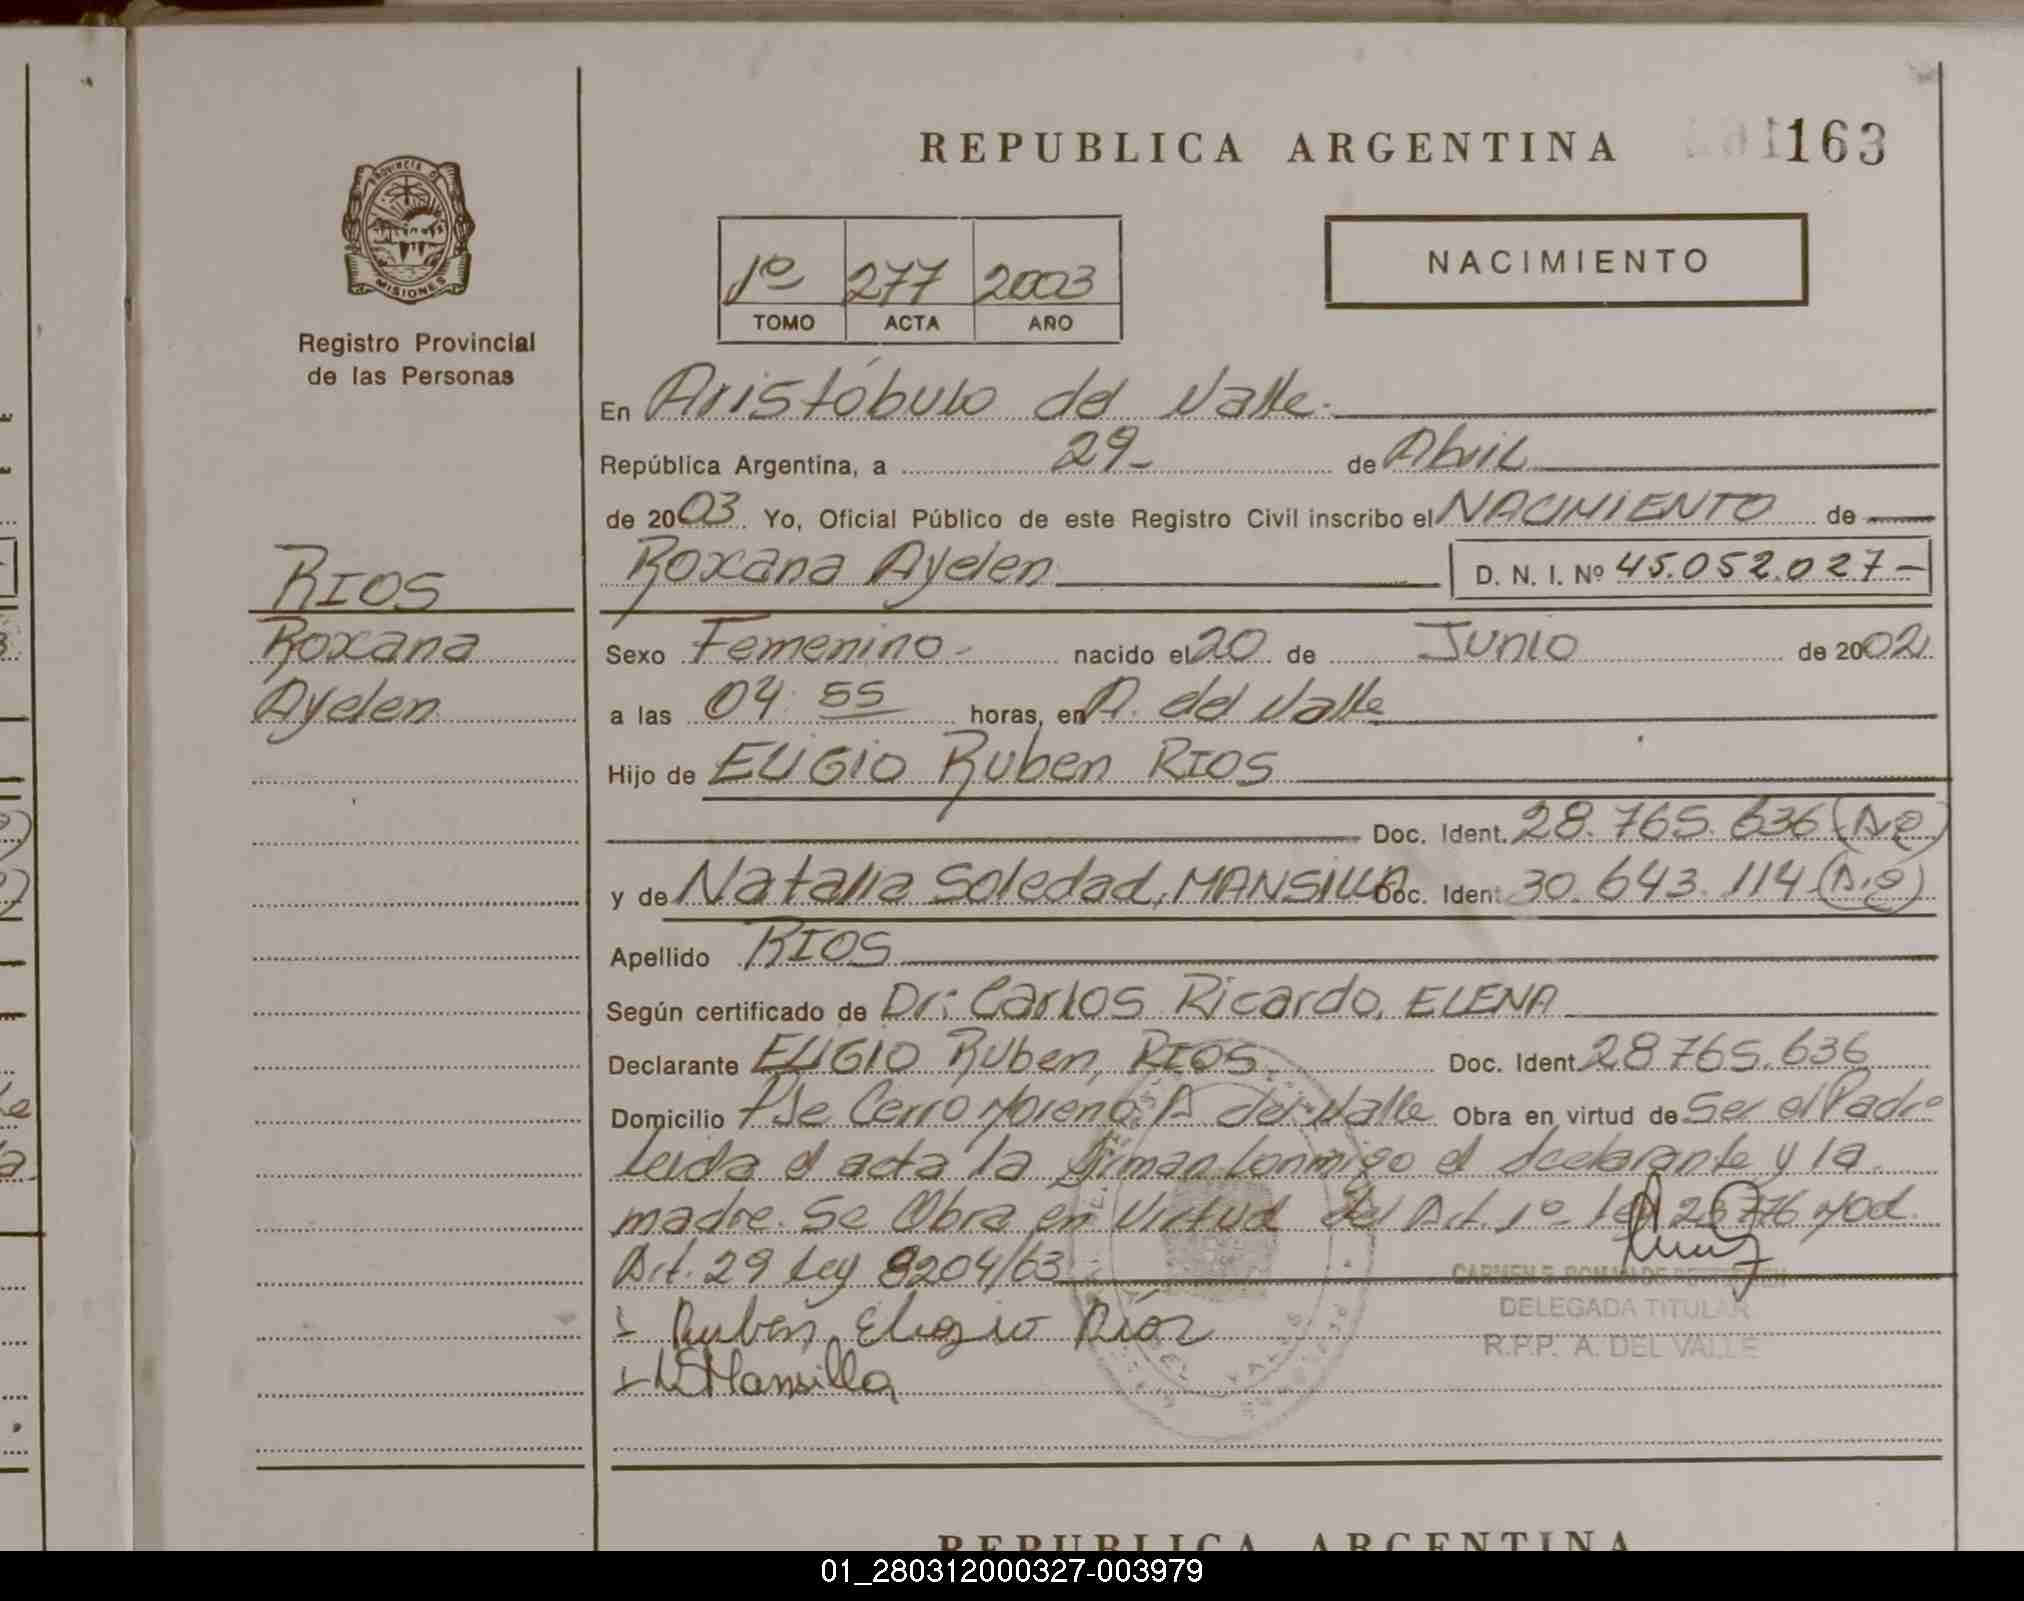 REPUBLICA ARGENTINA
163
PROVINCIA DE MISIONES
Registro Provincial
de las Personas
1º 277 2003
TOMO ACTA AÑO
NACIMIENTO
En Aristóbulo del Valle.
República Argentina, a 29 de Abril
de 2003. Yo, Oficial Público de este Registro Civil inscribo el NACIMIENTO de
RIOS
Roxana
Ayelen
Roxana Ayelen D. N. I. Nº 45.052.027-
Sexo Femenino- nacido el 20 de Junio de 2002
a las 04 55 horas, en A. del Valle
Hijo de ELIGIO Ruben RIOS
Doc. Ident. 28.765.636
y de Natalia Soledad, MANSILLA Doc. Ident. 30.643.114
Apellido RIOS
Según certificado de Dr: Carlos Ricardo, ELENA
Declarante ELIGIO Ruben, RIOS Doc. Ident. 28.765.636
Domicilio Pje Cerro Moreno, A del Valle Obra en virtud de Ser el Padre
Leida el acta la firman conmigo el declarante y la
madre. Se Obra en Virtud del Art. 1º Ley Mod.
Art. 29 Ley 8204/63
Ruben Eligio Ríos
Mansilla
DELEGADA TITULAR
R.P.P. A. DEL VALLE
REPUBLICA ARGENTINA
01_280312000327-003979